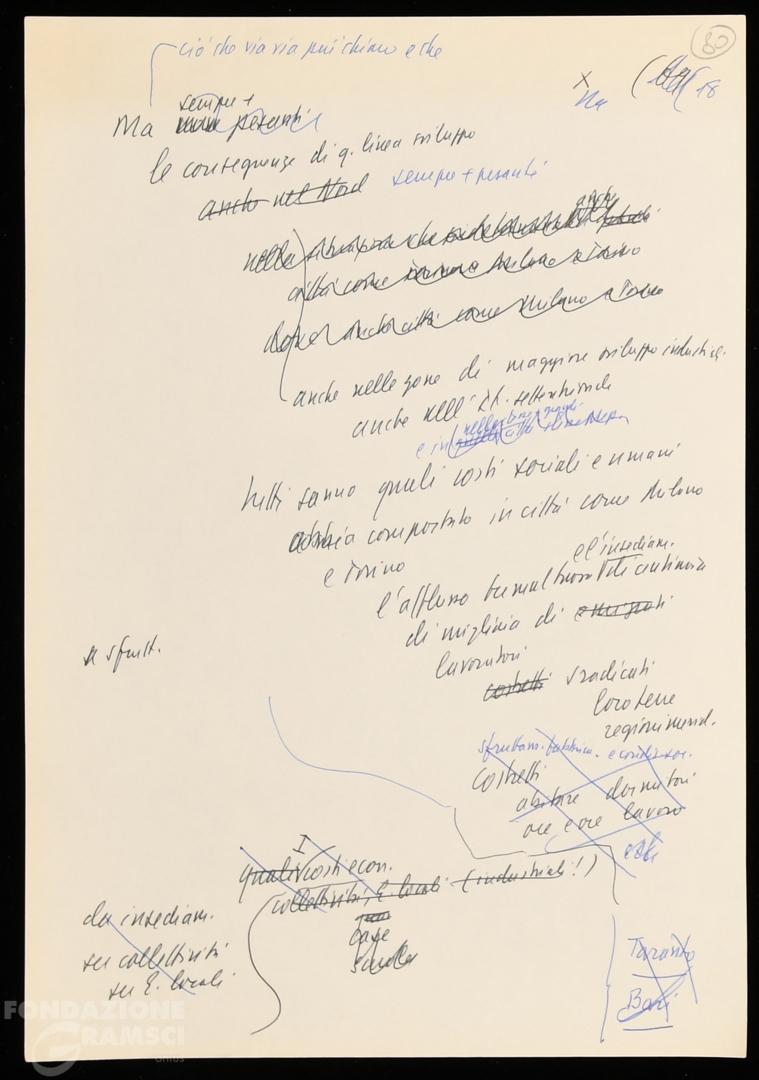 80
ciò che via via più chiaro e che
18
x
Ma
sempre +
Ma pesanti
le conseguenze di q. linea sviluppo
anche nel Nord sempre + pesanti
nella che anche
città come Milano e Torino
anche città come Milano e Torino
anche nelle zone di maggiore sviluppo industr.
anche nell' It. settentrionale
e in
tutti sanno quali costi sociali e umani
abbia comportato in città come Milano
e Torino
e l'insediam.
l'afflusso tumultuoso di centinaia
di migliaia di emigrati
lavoratori
costretti sradicati
loro terre
regioni merid.
x sfrutt.
sfruttam. fabbrica e
costretti
abitare dormitori
ore e ore lavoro
I
quali costi econ.
collettività, E. locali (industriali!)
case
scuole
da insediam.
su collettività
su E. locali
Taranto
Bari
FONDAZIONE
GRAMSCI
onlus